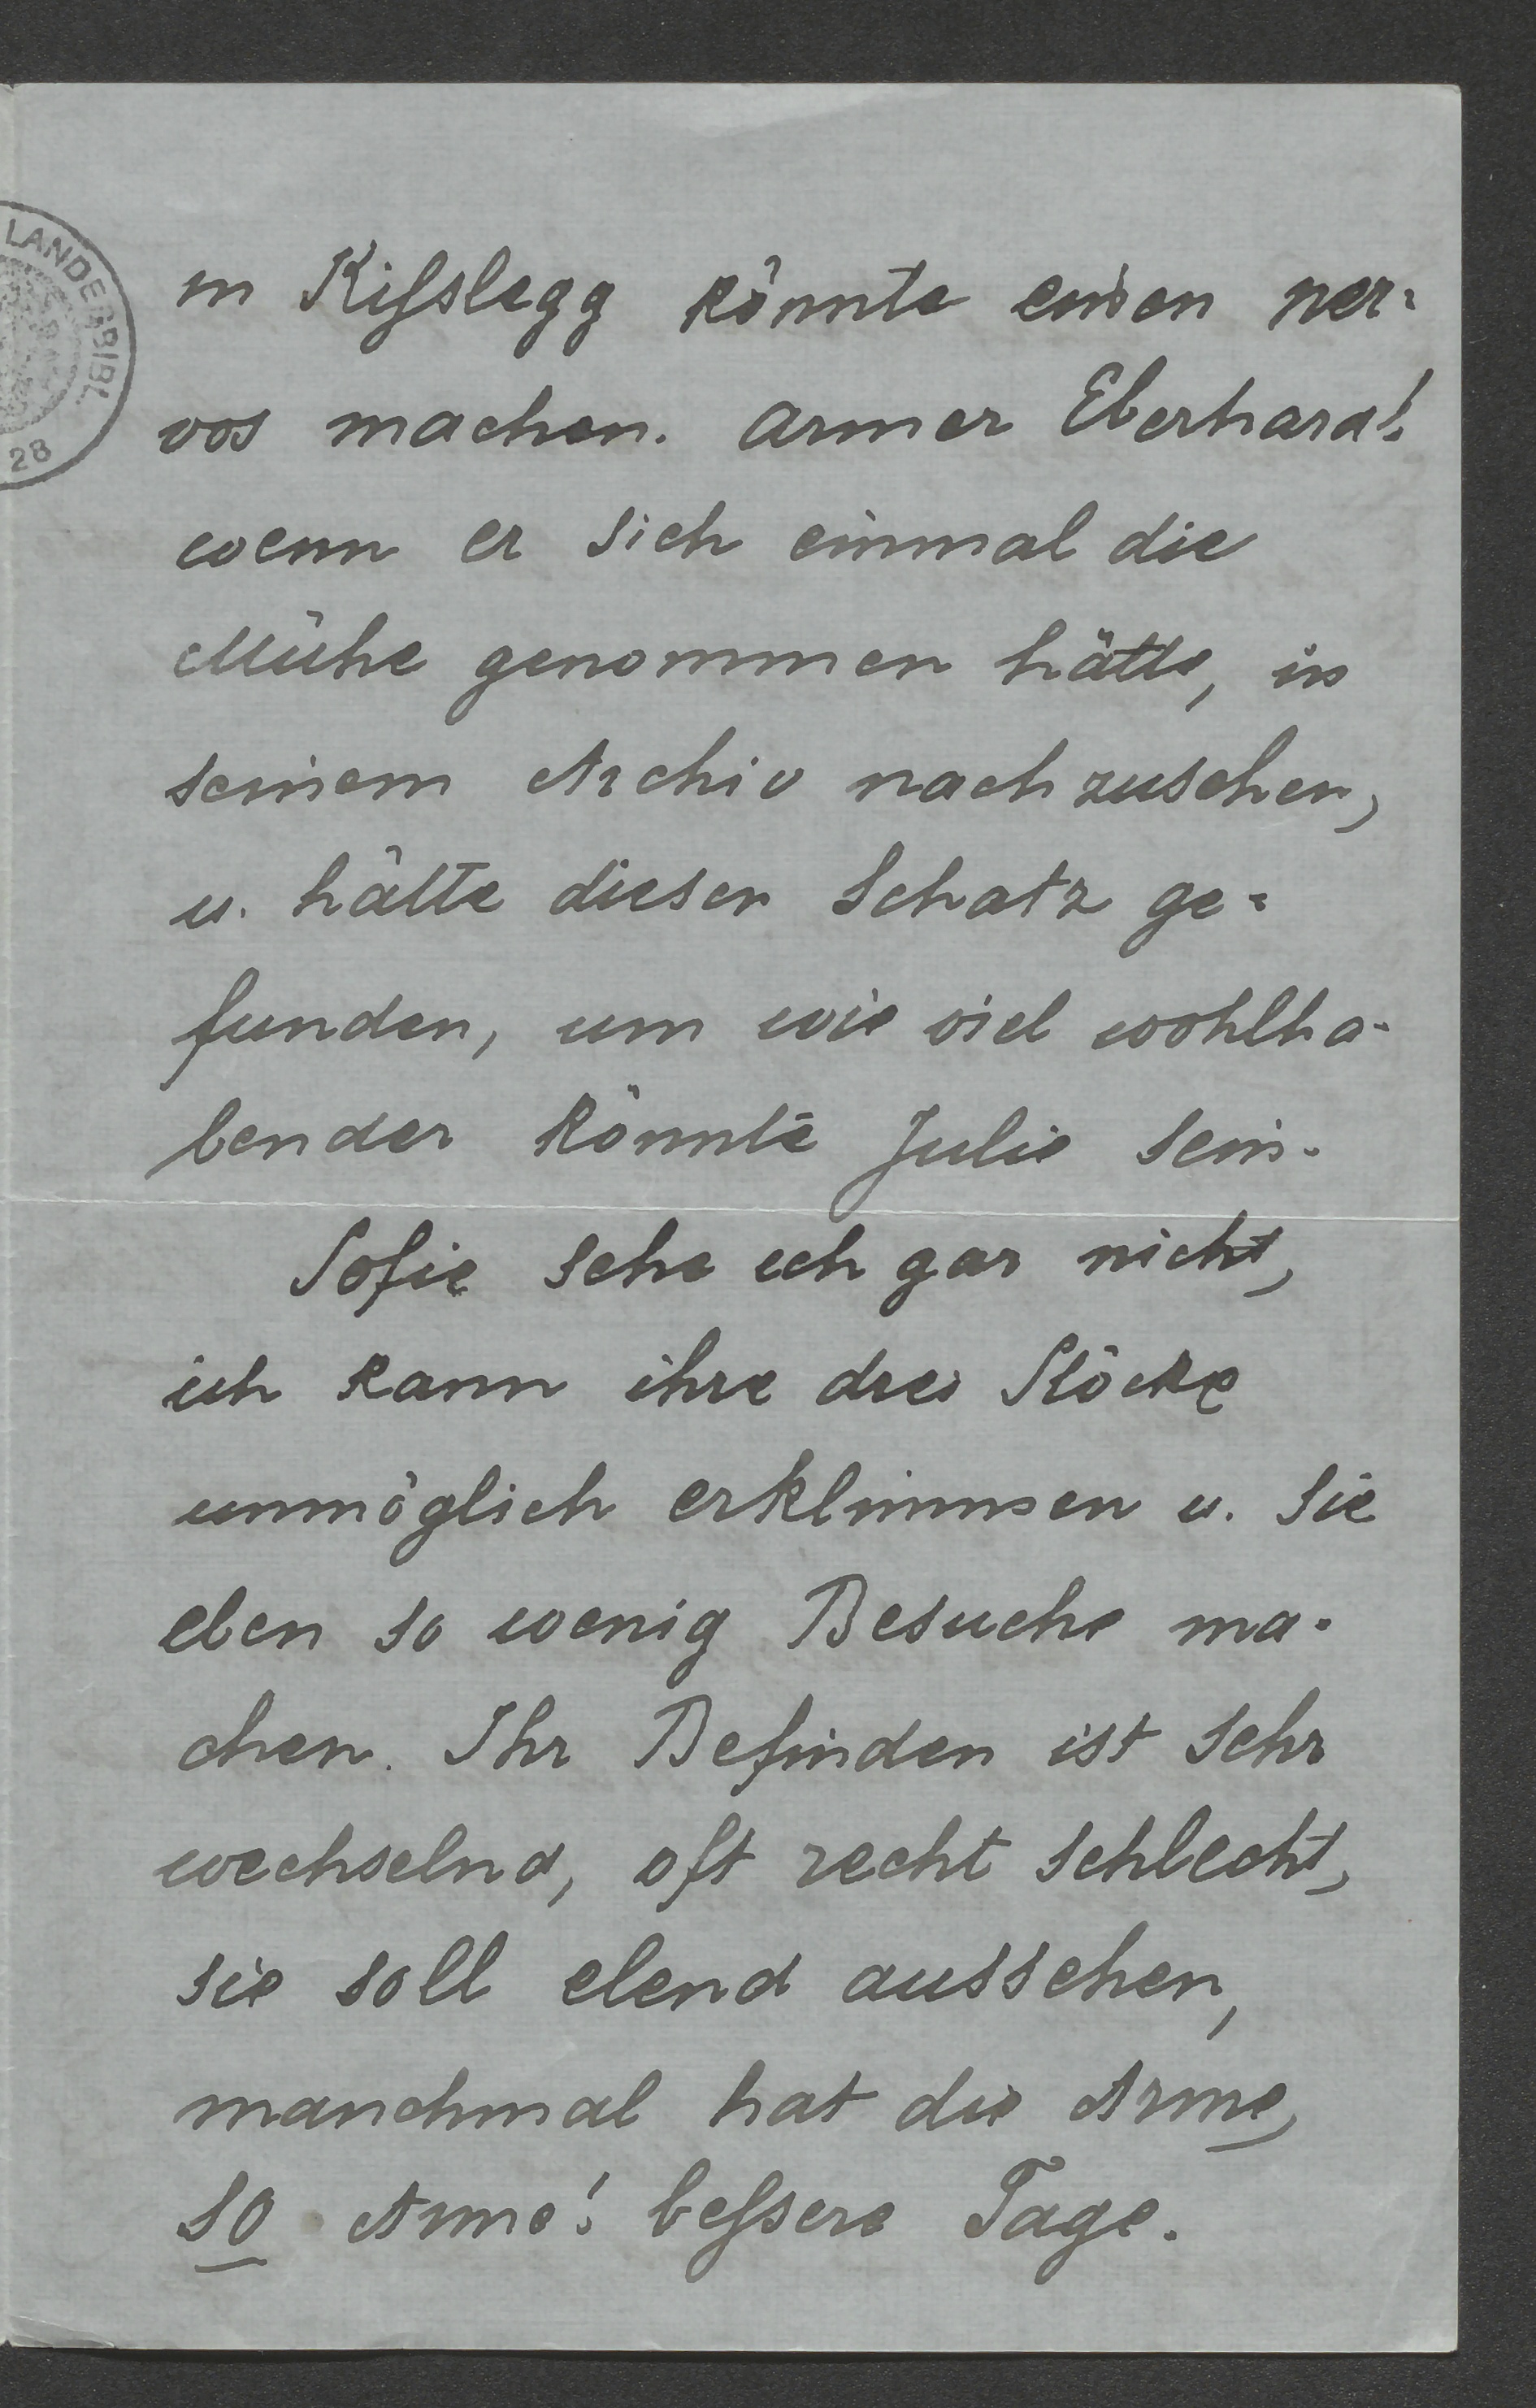 LANDESBIBL.
28
in Kißlegg könnte einen ner-
vos machen. Armer Eberhard!
wenn er sich einmal die
Mühe genommen hätte, in
seinem Archiv nachzusehen,
u. hätte diesen Schatz ge-
funden, um wie viel wohlha-
bender könnte Julie sein.
Sofie sehe ich gar nicht,
ich kann ihre drei Stöcke
unmöglich erklimmen u. sie
eben so wenig Besuche ma-
chen. Ihr Befinden ist sehr
wechselnd, oft recht schlecht,
sie soll elend aussehen,
manchmal hat die Arme,
so Arme! beßere Tage.